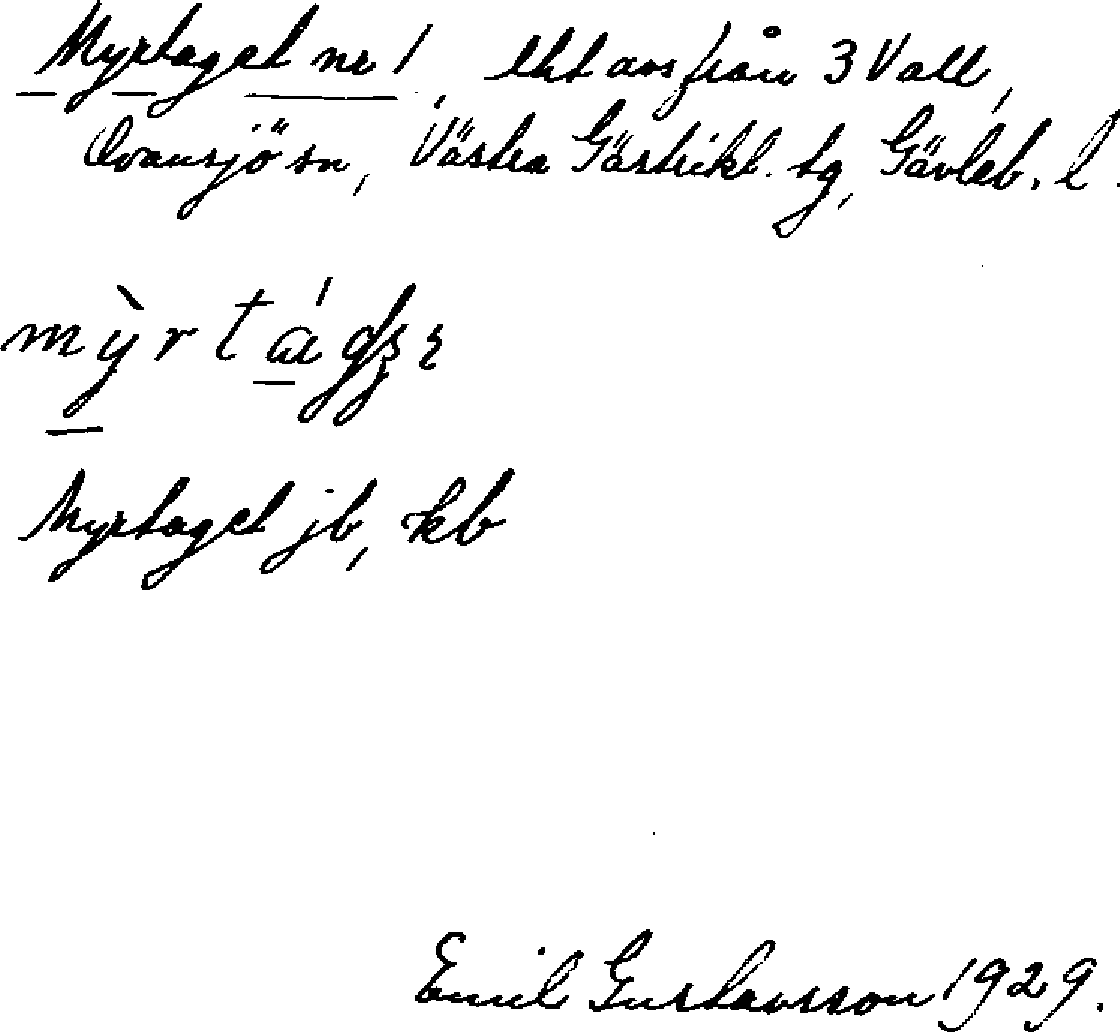 Myrtaget nr 1, lht avs från 3 Vall,
Ovansjö sn, Västra Gästrikl. tg, Gävleb. l.
Myrtaget jb, kb
Emil Gustavsson 1929.